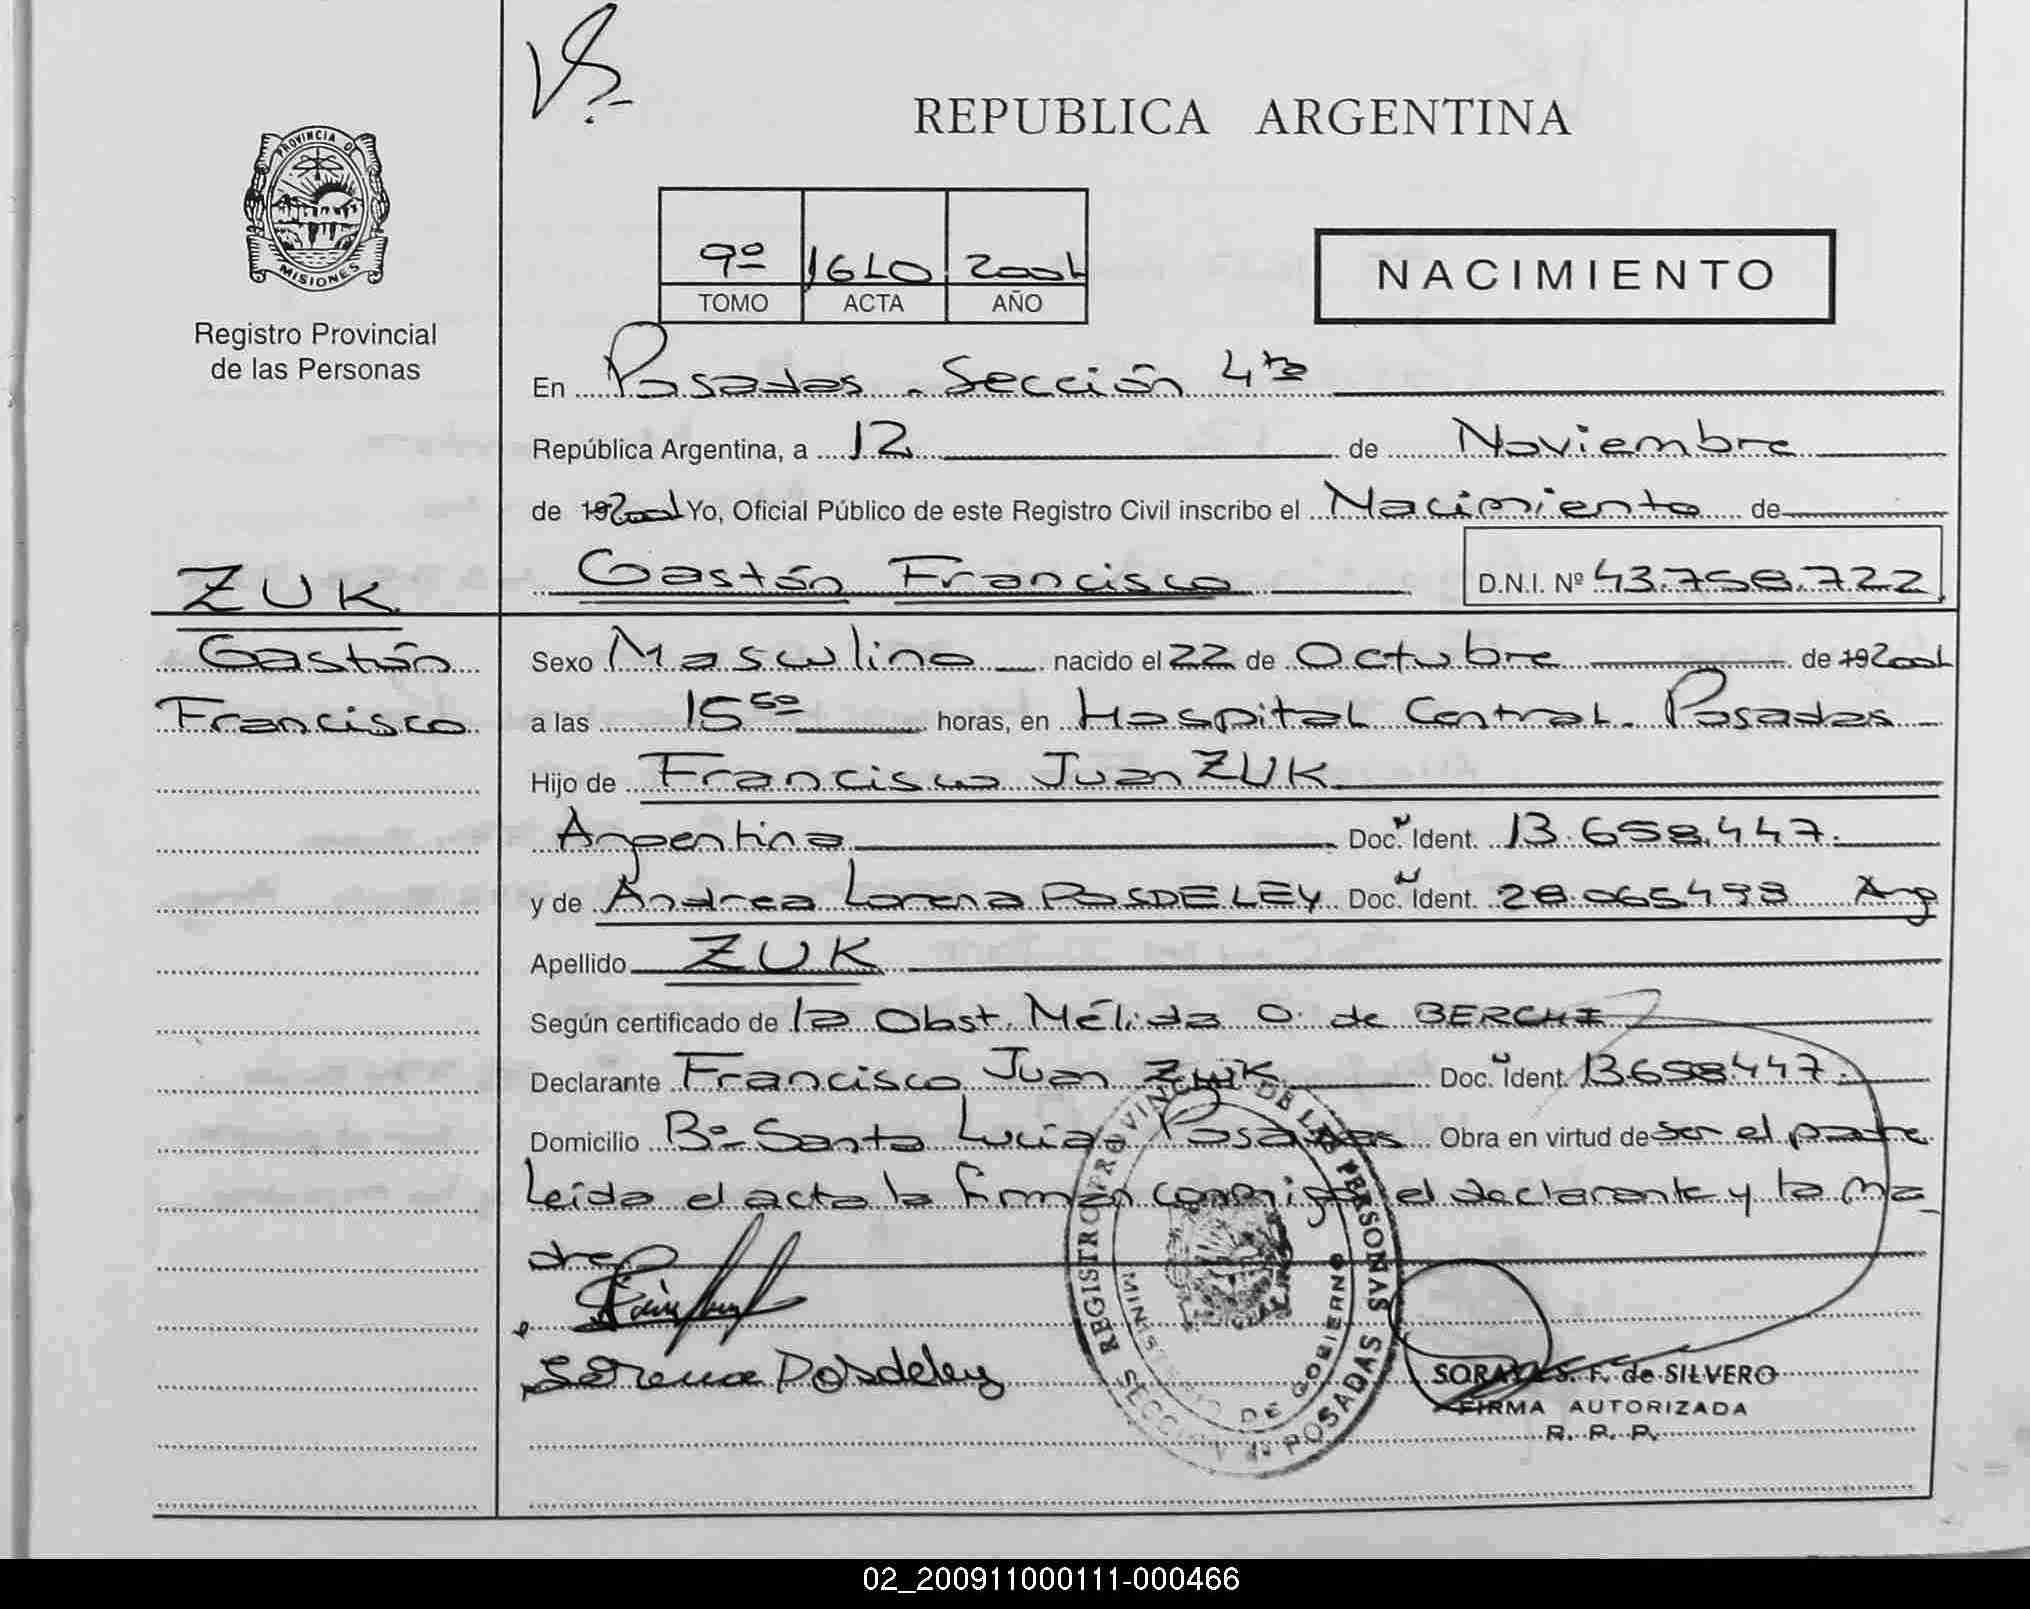 PROVINCIA DE
MISIONES
Registro Provincial
de las Personas
ZUK
Gastón
Francisco
REPUBLICA ARGENTINA
9º 1610 2001
TOMO ACTA AÑO
NACIMIENTO
En Posadas - Sección 4ta
República Argentina, a 12 de Noviembre
de 192001 Yo, Oficial Público de este Registro Civil inscribo el Nacimiento de
Gastón Francisco D.N.I. Nº 43.758.722
Sexo Masculino nacido el 22 de Octubre de 192001
a las 15 50 horas, en Hospital Central - Posadas
Hijo de Francisco Juan ZUK
Argentina Doc. Ident. 13.658.447
y de Andrea Lorena POSDELEY Doc. Ident. 28.065.493 Arg
Apellido ZUK
Según certificado de la Obst. Mélida O. de BERCHI
Declarante Francisco Juan ZUK Doc. Ident. 13.658.447
Domicilio Bº Santa Lucía Posadas Obra en virtud de ser el padre
Leída el acta la firman conmigo el declarante y la ma-
dre
Lorena Posdeley
REGISTRO PROVINCIAL DE LAS PERSONAS
MINISTERIO DE GOBIERNO
SECCION 4ª POSADAS
SORAYA S. F. de SILVERO
FIRMA AUTORIZADA
R. P. P.
02_200911000111-000466